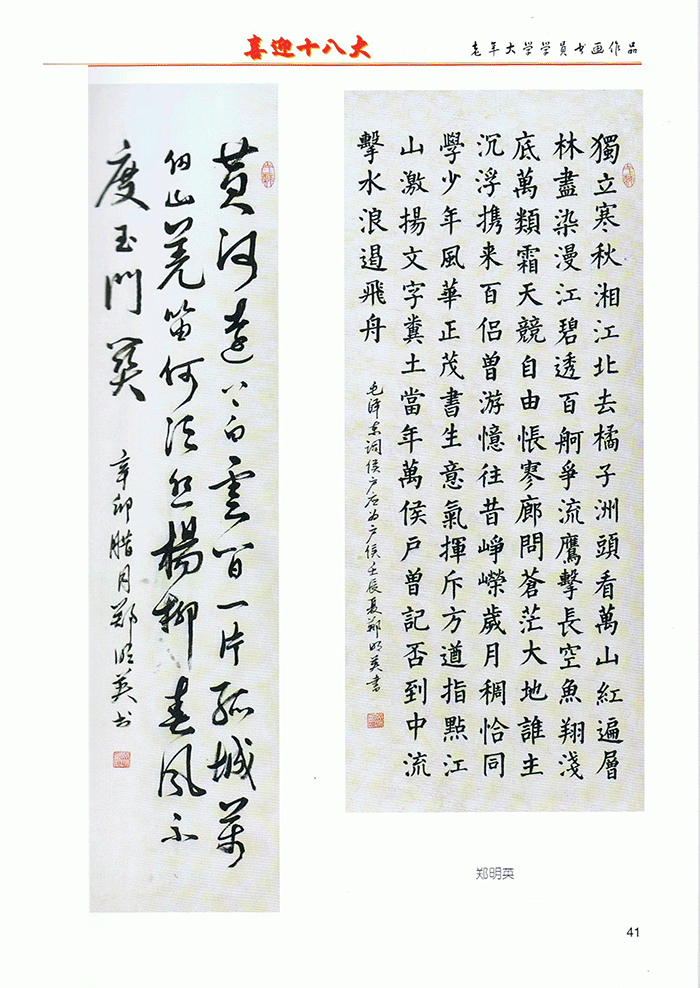 喜迎十八大
老年大学学员书画作品
獨立寒秋湘江北去橘子洲頭看萬山紅遍層
林盡染漫江碧透百舸爭流鷹擊長空魚翔淺
底萬類霜天競自由悵寥廊問蒼茫大地誰主
沉浮携来百侣曾游憶往昔崢嶸歲月稠恰同
學少年風華正茂書生意氣揮斥方遒指點江
山激揚文字糞土當年萬侯戶曾記否到中流
擊水浪遏飛舟
毛泽东词侯户应为户侯壬辰夏郑明英書
黄河遠上白雲間一片孤城萬
仞山羌笛何须怨楊柳春风不
度玉門關
辛卯腊月郑明英书
郑明英
41